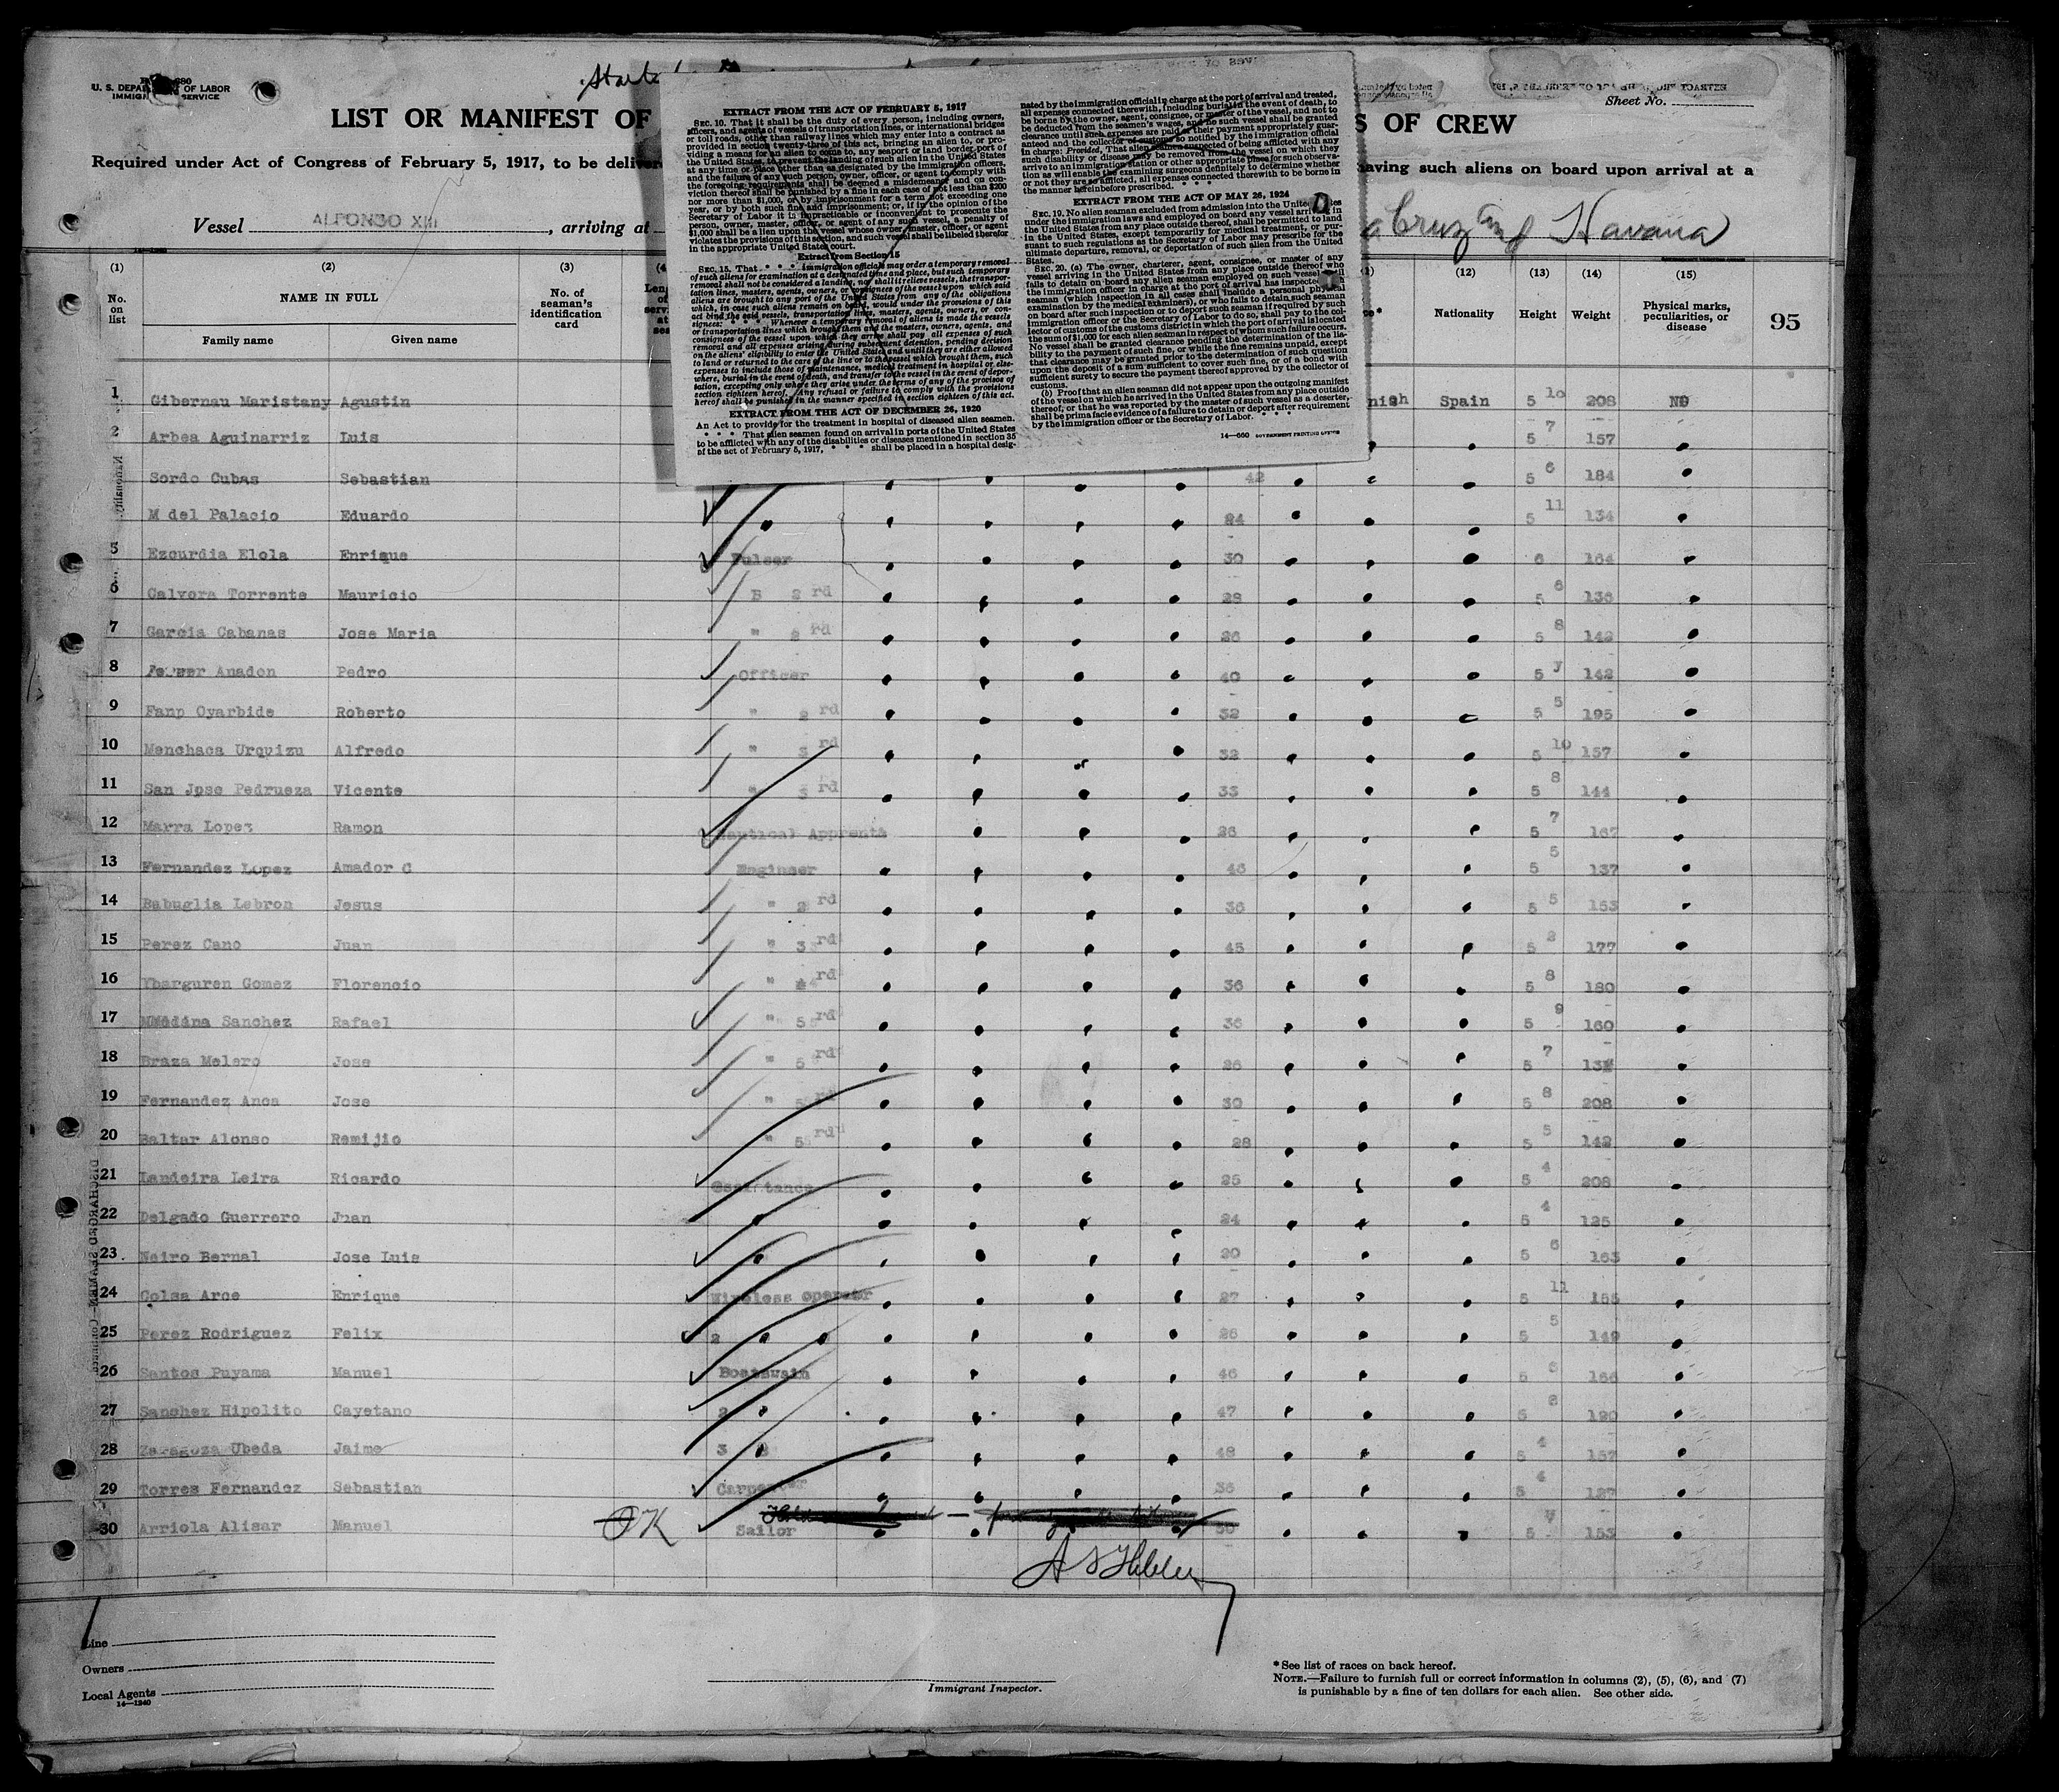 U. S. DEPARTMENT OF LABOR
IMMIGRATION SERVICE
Sheet No.
LIST OR MANIFEST OF
S OF CREW
Required under Act of Congress of February 5, 1917, to be delivered
having such aliens on board upon arrival at a
Vessel ALFONSO XIII, arriving at
Havana
EXTRACT FROM THE ACT OF FEBRUARY 5, 1917
SEC. 10. That it shall be the duty of every person, including owners,
officers, and agents of vessels of transportation lines, or international bridges
or toll roads, other than railway lines which may enter into a contract as
provided in section twenty-three of this act, bringing an alien to, or pro-
viding a means for an alien to come to, any seaport or land border port of
the United States, to prevent the landing of such alien in the United States
at any time or place other than as designated by the immigration officers,
and the failure of any such person, owner, officer, or agent to comply with
the foregoing requirements shall be deemed a misdemeanor and on con-
viction thereof shall be punished by a fine in each case of not less than $200
nor more than $1,000, or by imprisonment for a term not exceeding one
year, or by both such fine and imprisonment; or, if in the opinion of the
Secretary of Labor it is impracticable or inconvenient to prosecute the
person, owner, master, officer, or agent of any such vessel, a penalty of
$1,000 shall be a lien upon the vessel whose owner, master, officer, or agent
violates the provisions of this section, and such vessel shall be libeled therefor
in the appropriate United States court.
Extract from Section 15
SEC. 15. That * * * immigration officials may order a temporary removal
of such aliens for examination at a designated time and place, but such temporary
removal shall not be considered a landing, nor shall it relieve vessels, the transpor-
tation lines, masters, agents, owners, or consignees of the vessel upon which said
aliens are brought to any port of the United States from any of the obligations
which, in case such aliens remain on board, would under the provisions of this
act bind the said vessels, transportation lines, masters, agents, owners, or con-
signees: * * * Whenever a temporary removal of aliens is made the vessels
or transportation lines which brought them and the masters, owners, agents, and
consignees of the vessel upon which they arrive shall pay all expenses of such
removal and all expenses arising during subsequent detention, pending decision
on the aliens' eligibility to enter the United States and until they are either allowed
to land or returned to the care of the line or to the vessel which brought them, such
expenses to include those of maintenance, medical treatment in hospital or else-
where, burial in the event of death, and transfer to the vessel in the event of depor-
tation, excepting only where they arise under the terms of any of the provisos of
section eighteen hereof. Any refusal or failure to comply with the provisions
hereof shall be punished in the manner specified in section eighteen of this act.
EXTRACT FROM THE ACT OF DECEMBER 26, 1920
An Act to provide for the treatment in hospital of diseased alien seamen.
* * * That alien seamen found on arrival in ports of the United States
to be afflicted with any of the disabilities or diseases mentioned in section 35
of the act of February 5, 1917, * * * shall be placed in a hospital desig-
nated by the immigration official in charge at the port of arrival and treated,
all expenses connected therewith, including burial in the event of death, to
be borne by the owner, agent, consignee, or master of the vessel, and not to
be deducted from the seamen's wages, and no such vessel shall be granted
clearance until such expenses are paid or their payment appropriately guar-
anteed and the collector of customs so notified by the immigration official
in charge: Provided, That alien seamen suspected of being afflicted with any
such disability or disease may be removed from the vessel on which they
arrive to an immigration station or other appropriate place for such observa-
tion as will enable the examining surgeons definitely to determine whether
or not they are so afflicted, all expenses connected therewith to be borne in
the manner hereinbefore prescribed. * * *
EXTRACT FROM THE ACT OF MAY 26, 1924
SEC. 19. No alien seaman excluded from admission into the United States
under the immigration laws and employed on board any vessel arriving in
the United States from any place outside thereof, shall be permitted to land
in the United States, except temporarily for medical treatment, or pur-
suant to such regulations as the Secretary of Labor may prescribe for the
ultimate departure, removal, or deportation of such alien from the United
States.
SEC. 20. (a) The owner, charterer, agent, consignee, or master of any
vessel arriving in the United States from any place outside thereof who
fails to detain on board any alien seaman employed on such vessel until
the immigration officer in charge at the port of arrival has inspected such
seaman (which inspection in all cases shall include a personal physical
examination by the medical examiners), or who fails to detain such seaman
on board after such inspection or to deport such seaman if required by such
immigration officer or the Secretary of Labor to do so, shall pay to the col-
lector of customs of the customs district in which the port of arrival is located
the sum of $1,000 for each alien seaman in respect of whom such failure occurs.
No vessel shall be granted clearance pending the determination of the lia-
bility to the payment of such fine, or while the fine remains unpaid, except
that clearance may be granted prior to the determination of such question
upon the deposit of a sum sufficient to cover such fine, or of a bond with
sufficient surety to secure the payment thereof approved by the collector of
customs.
(b) Proof that an alien seaman did not appear upon the outgoing manifest
of the vessel on which he arrived in the United States from any place outside
thereof, or that he was reported by the master of such vessel as a deserter,
shall be prima facie evidence of a failure to detain or deport after requirement
by the immigration officer or the Secretary of Labor. * * *
14—660 GOVERNMENT PRINTING OFFICE
(1) (2) (3) (12) (13) (14) (15)
No. on list NAME IN FULL No. of seaman's identification card Nationality Height Weight Physical marks, peculiarities, or disease 95
Family name Given name
1 Gibernau Maristany Agustin nish Spain 5 10 208 NO
2 Arbea Aguinarriz Luis 5 7 157
Sordo Cubas Sebastian 42 5 6 184
M del Palacio Eduardo 24 5 11 134
5 Ezcurdia Elola Enrique 30 6 164
6 Calvora Torrente Mauricio 2 rd 28 5 6
7 Garcia Cabanas Jose Maria " rd 26 5 8 142
8 Anadon Pedro Officer 40 5 142
9 Fanp Oyarbide Roberto " 2 rd 32 5 5 195
10 Menchaca Urquizu Alfredo " 3 rd 32 5 10 157
11 San Jpse Pedrueza Vicente " 3 rd 33 5 8 144
12 Marra Lopez Ramon Nautical Apprenta 26 5 7 167
13 Fernandez Lopez Amador C Engineer 5 5 137
14 Babuglia Lebron Jesus " 2 rd 36 5 5 153
15 Perez Cano Juan " 3 rd 45 5 2 177
16 Ybarguren Gomez Florencio " 4 rd 36 5 8 180
17 Medina Sanchez Rafael " 5 rd 36 5 9 160
18 Braza Melero Jose " 5 rd 26 5 7
19 Fernandez Anca Jose " 5 rd 30 5 8 208
20 Baltar Alonso Remijio " 5 rd 28 5 5 142
21 Landeira Leira Ricardo 25 5 4 208
22 Delgado Guerrero Juan 24 5 4 125
23 Neiro Bernal Jose Luis 20 5 6 163
24 Colsa Arce Enrique Wireless operator 27 5 11 155
25 Perez Rodriguez Felix 2 26 5 5 149
26 Santos Puyama Manuel Boatswain 46 5 166
27 Sanchez Hipolito Cayetano 2 47 5 190
28 Zaragoza Ubeda Jaime 3 48 5 4 157
29 Torres Fernandez Sebastian Carpenter 36 5 4 127
30 Arriola Alisar Manuel OK Sailor 5 153
Line
Owners
Local Agents
14—1240
Immigrant Inspector.
* See list of races on back hereof.
NOTE.—Failure to furnish full or correct information in columns (2), (5), (6), and (7)
is punishable by a fine of ten dollars for each alien. See other side.